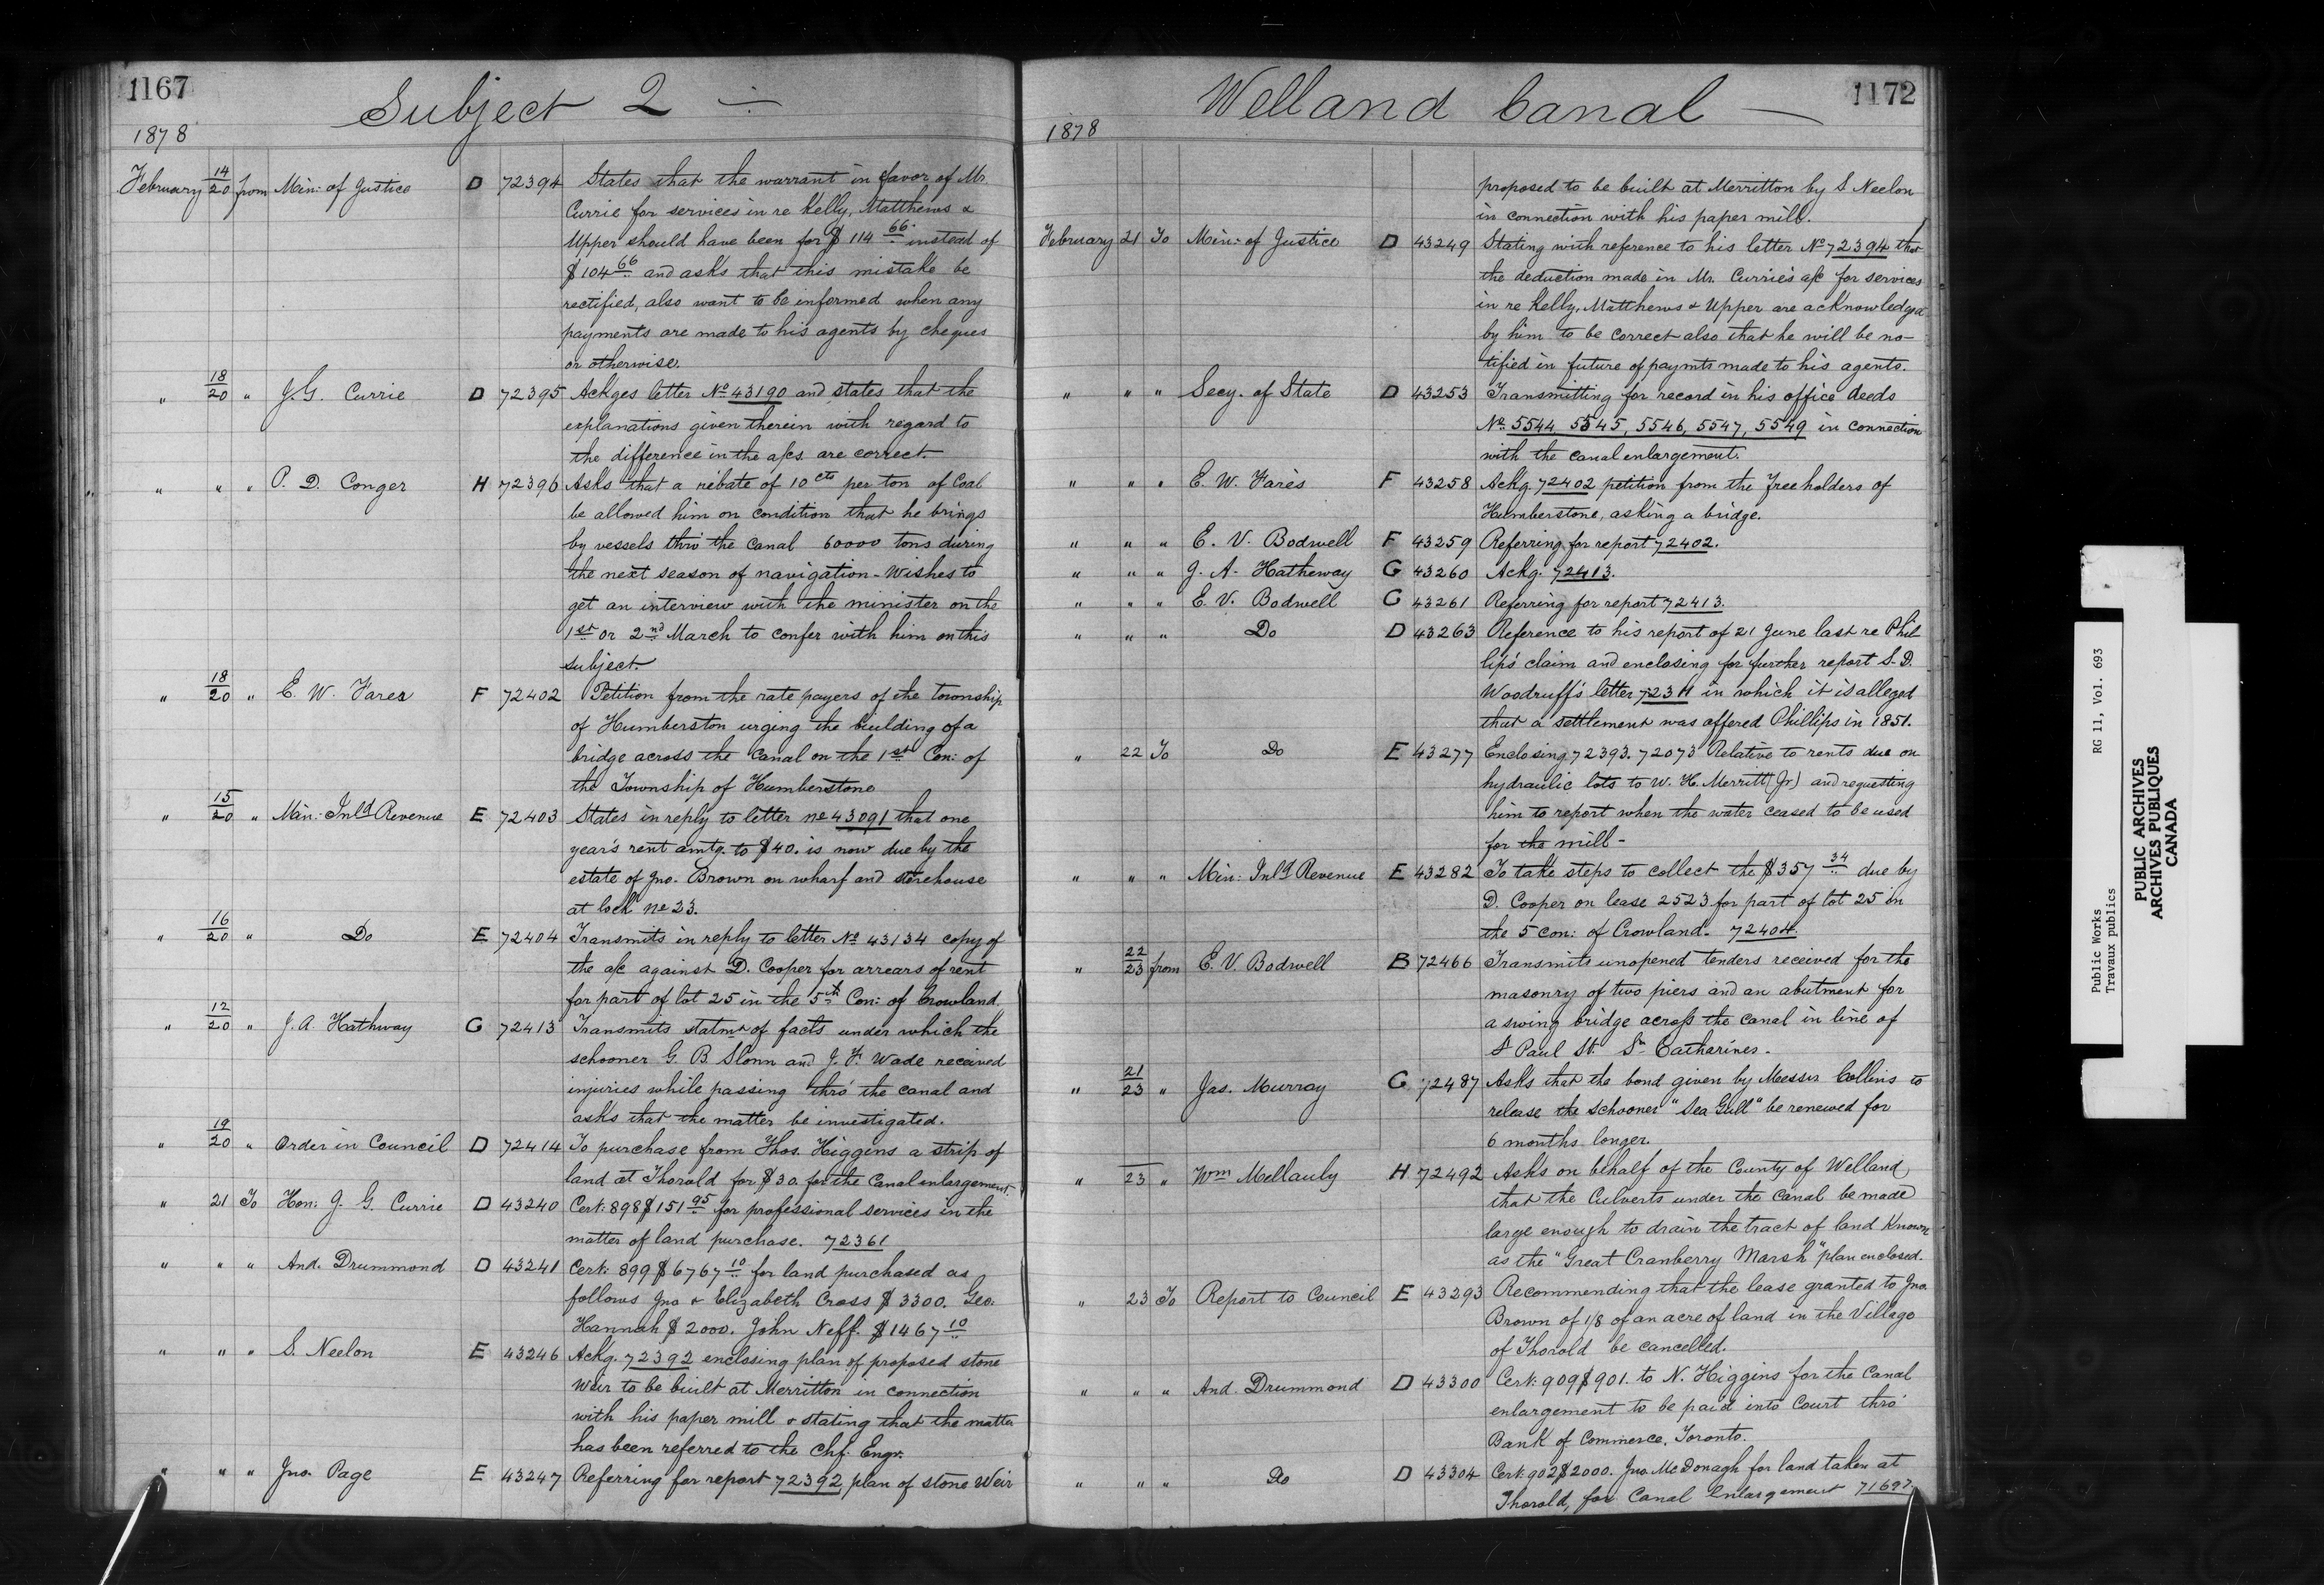 1167
Subject 2 ÷
1878
February 14/20 from Min: of Justice D 72394 States that the warrant in favor of Mr.
Currie for services in re Kelly, Matthews &
Upper should have been for $114 66 instead of
$104 66 and asks that this mistake be
rectified, also want to be informed when any
payments are made to his agents by cheques
or otherwise.
" 18/20 " J. G. Currie D 72395 Ackges letter No 43190 and states that the
explanations given therein with regard to
the difference in the a/cs are correct.
" " " P. D. Conger H 72396 Asks that a rebate of 10 cts per ton of Coal
be allowed him on condition that he brings
by vessels thro the Canal 60000 tons during
the next season of navigation - Wishes to
get an interview with the minister on the
1st or 2nd March to confer with him on this
subject.
" 18/20 " E. W. Fares F 72402 Petition from the rate payers of the township
of Humberston urging the building of a
bridge across the Canal on the 1st Con: of
the Township of Humberstone
" 15/20 " Min: Inld Revenue E 72403 States in reply to letter no 43091 that one
year's rent amtg. to $40. is now due by the
estate of Jno. Brown on wharf and storehouse
at lock no 23.
" 16/20 " Do E 72404 Transmits in reply to letter No 43134 copy of
the a/c against D. Cooper for arrears of rent
for part of lot 25 in the 5th Con: of Crowland.
" 12/20 " J. A. Hathway G 72413 Transmits statmt of facts under which the
schooner G. B. Slonn and J. F. Wade received
injuries while passing thro' the canal and
asks that the matter be investigated.
" 19/20 " Order in Council D 72414 To purchase from Thos. Higgins a strip of
land at Thorold for $30. for the Canal enlargement.
" 21 To Hon: J. G. Currie D 43240 Cert: 898 $151 95 for professional services in the
matter of land purchase. 72361
" " " And. Drummond D 43241 Cert: 899 $6767 10 for land purchased as
follows Jno & Elizabeth Cross $3300. Geo.
Hannah $2000. John Neff. $1467 10
" " " S. Neelon E 43246 Ackg. 72392 enclosing plan of proposed stone
Weir to be built at Merritton in connection
with his paper mill & stating that the matter
has been referred to the Chf. Engr.
" " " Jno. Page E 43247 Referring for report 72392, plan of stone Weir
1172
Welland Canal —
1878
proposed to be built at Merritton by S Neelon
in connection with his paper mill.
February 21 To Min: of Justice D 43249 Stating with reference to his letter No 72394 that
the deduction made in Mr. Currie's a/c for services
in re Kelly, Matthews & Upper are acknowledged
by him to be correct also that he will be no-
tified in future of paymts made to his agents.
" " " Secy. of State D 43253 Transmitting for record in his office deeds
No. 5544 5545, 5546, 5547, 5549 in connection
with the canal enlargement.
" " " E. W. Fares F 43258 Ackg. 72402 petition from the freeholders of
Humberstone, asking a bridge.
" " " E. V. Bodwell F 43259 Referring for report 72402.
" " " J. A. Hatheway G 43260 Ackg. 72413.
" " " E. V. Bodwell G 43261 Referring for report 72413.
" " " Do D 43263 Reference to his report of 21 June last re Phil
lips' claim and enclosing for further report S. D.
Woodruff's letter in which it is alleged
that a settlement was offered Phillips in 1851.
" 22 To Do E 43277 Enclosing 72393. 72073 Relative to rents due on
hydraulic lots to W. H. Merritt (Jr) and requesting
him to report when the water ceased to be used
for the mill -
" " " Min: Inld Revenue E 43282 To take steps to collect the $357 34 due by
D. Cooper on lease 2523 for part of lot 25 in
the 5 con: of Crowland. 72404.
" 22/23 from E. V. Bodwell B 72466 Transmits unopened tenders received for the
masonry of two piers and an abutment for
a swing bridge across the Canal in line of
St Paul St. St. Catharines.
" 21/23 " Jas. Murray G 72487 Asks that the bond given by Messrs Collins to
release the schooner "Sea Gull" be renewed for
6 months longer.
" 23 " Wm McCauly H 72492 Asks on behalf of the County of Welland,
that the Culverts under the Canal be made
large enough to drain the tract of land known
as the "Great Cranberry Marsh" plan enclosed.
" 23 To Report to Council E 43293 Recommending that the lease granted to Jno.
Brown of 1/8 of an acre of land in the Village
of Thorold be cancelled.
" " " And. Drummond D 43300 Cert: 909 $901. to N. Higgins for the Canal
enlargement to be paid into Court thro'
Bank of Commerce, Toronto.
" " " Do D 43304 Cert: 902 $2000. Jno. McDonagh for land taken at
Thorold, for Canal Enlargement 71697
Public Works RG 11, Vol. 693
Travaux publics
PUBLIC ARCHIVES
ARCHIVES PUBLIQUES
CANADA